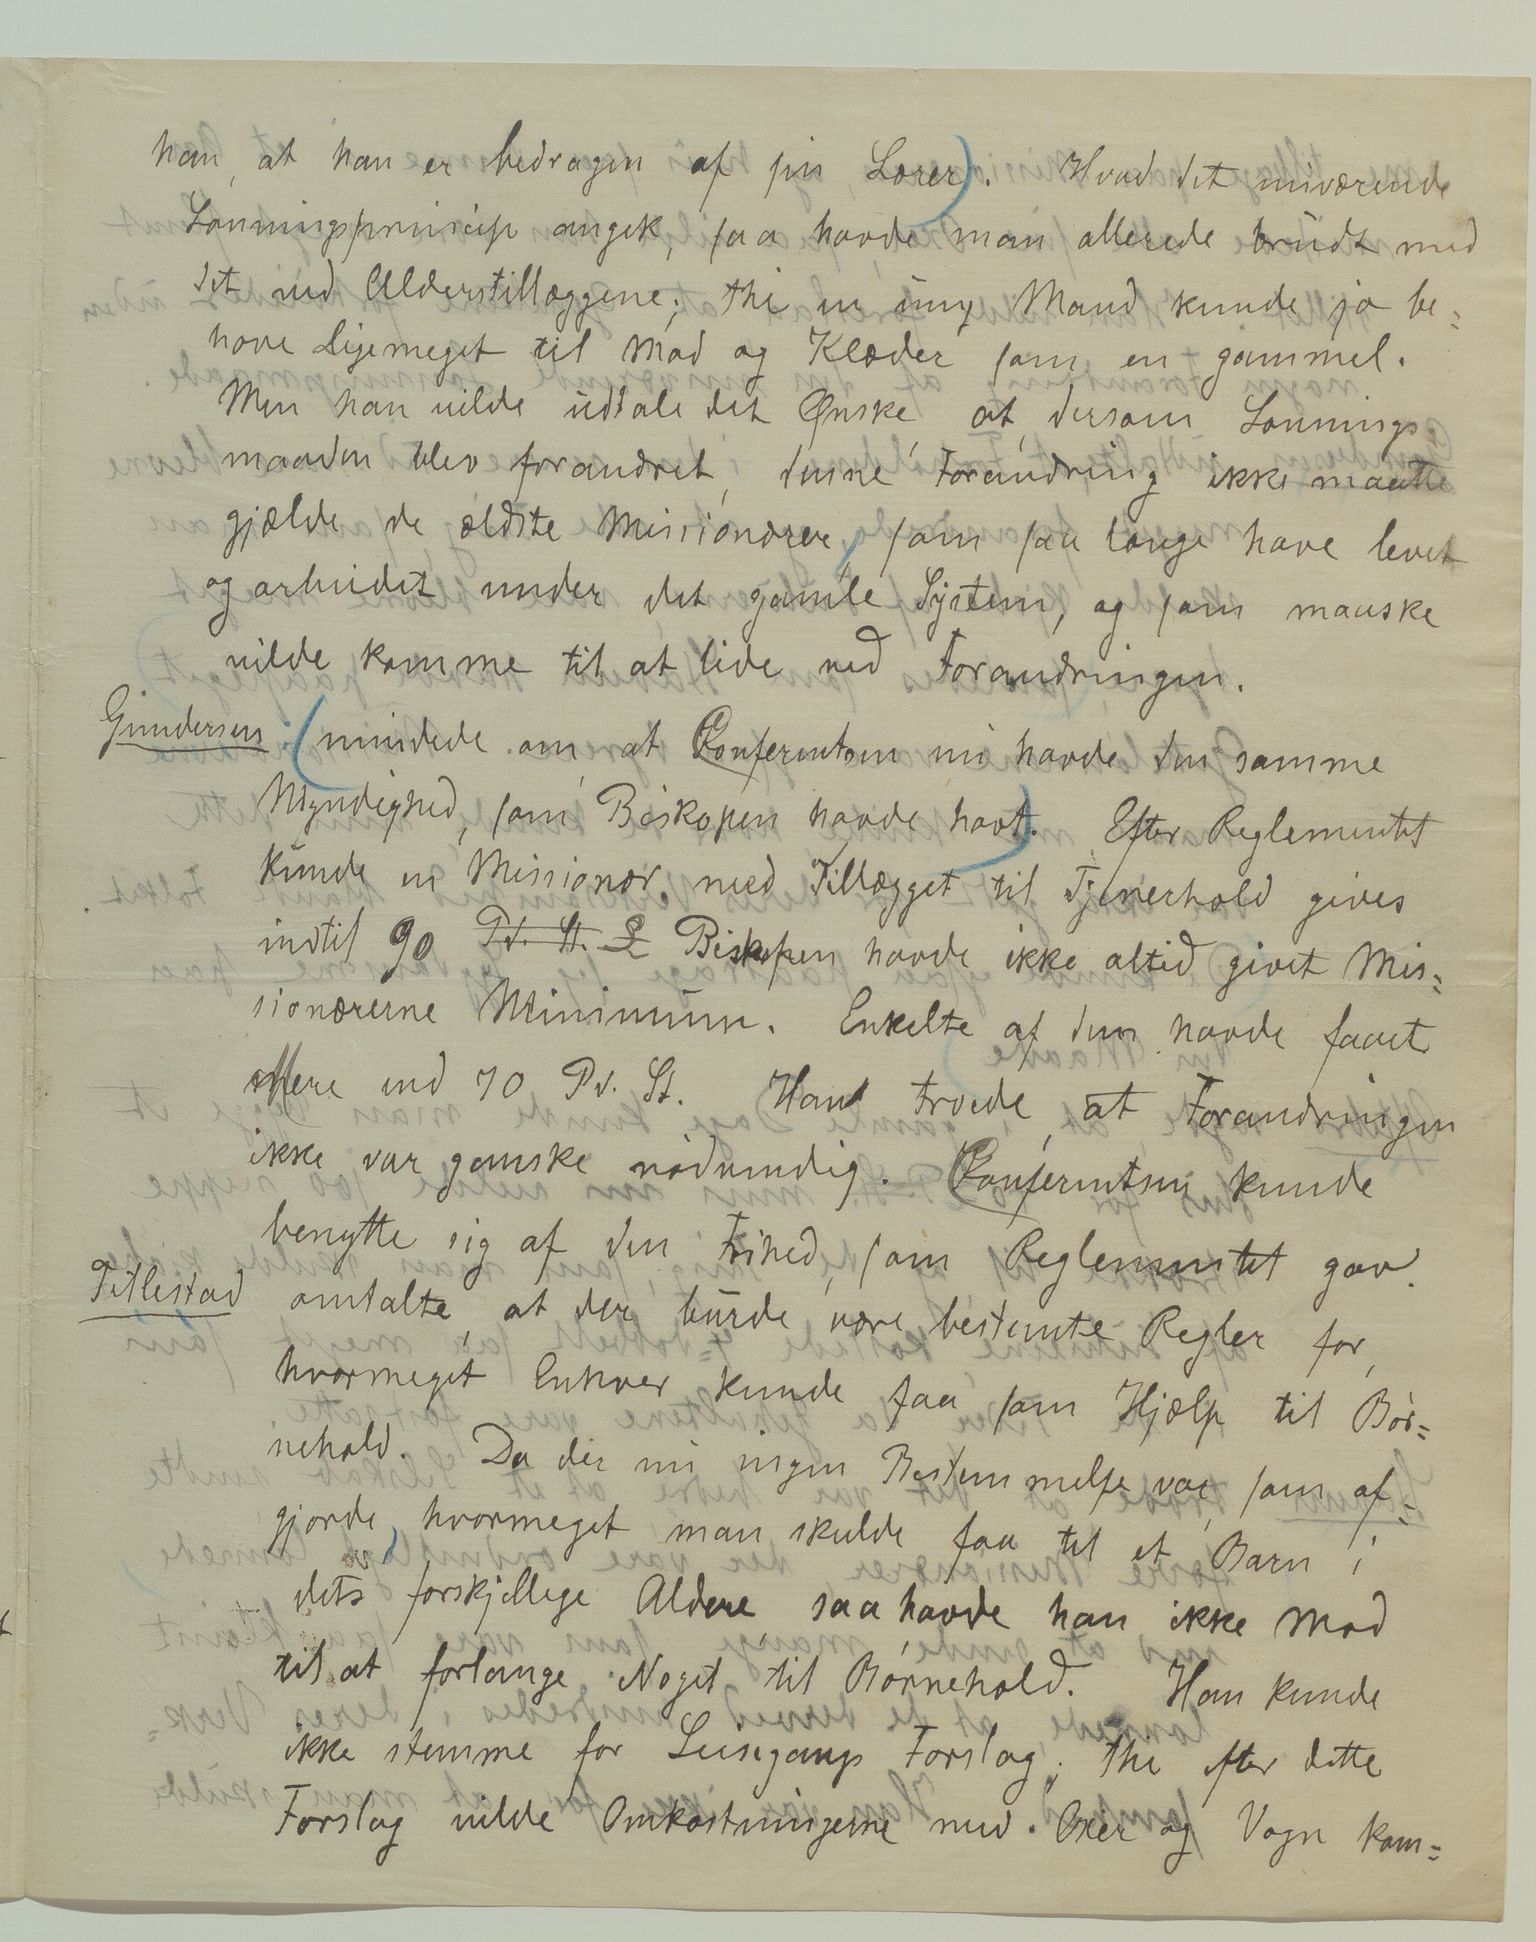 han, at han er bedragen af sin Lærer). Hvad det nuværende
Lønningsprincip angik, saa havde man allerede brudt med
det ved Alderstillæggene; thi en ung Mand kunde jo be=
høve Ligemeget til Mad og Klæder som en gammel.
Men han vilde udtale det Ønske, at, dersom Lønnings-
maaden blev forandret, denne Forandring ikke maatte
gjælde de ældste Missionærer, som saa længe have levet
og arbeidet under det gamle System, og som maaske
vilde komme til at lide ved Forandringen.
Gundersen: (mindede om, at Conferentsen nu havde den samme
Myndighed, som Biskopen havde havt). Efter Reglementet
kunde en Missionær med Tillægget til Tjenerhold gives
indtil 90 Pd. St. £ Biskopen havde ikke altid givet Mis=
sionærerne Minimum. Enkelte af dem havde faaet
Mere end 70 Pd. St. Han troede, at Forandringen
ikke var ganske nødvendig. Conferentsen kunde
benytte sig af den Frihed, som Reglementet gav.
Titlestad omtalte, at der burde være bestemte Regler for,
hvormeget Enhver kunde faa som Hjælp til Bør=
nehold. Da der nu ingen Bestemmelse var, som af=
gjorde, hvormeget man skulde faa til et Barn i
dets forskjellige Aldere saa havde han ikke Mod
til at forlange Noget til Børnehold. Han kunde
ikke stemme for Leisegangs Forslag; thi efter dette
Forslag vilde Omkostningerne med Oxer og Vogn kom=